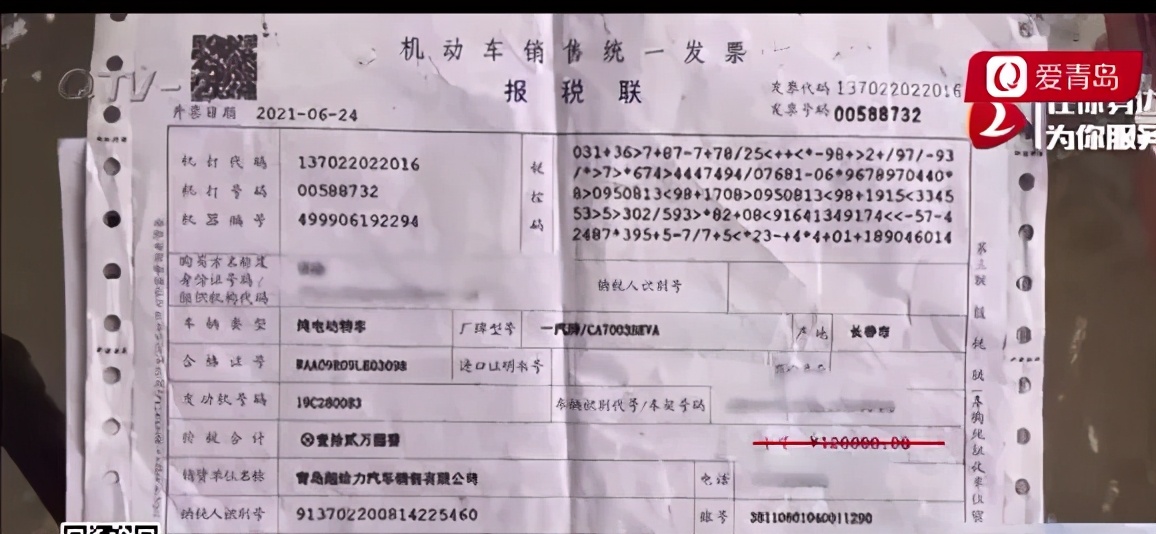 机动车销售统一发票
爱青岛
QTV-
报税联
发票代码 137022022016
发票号码 00588732
在你身边
为你服务
开票日期 2021-06-24
机打代码 137022022016
机打号码 00588732
机器编号 499906192294
税控码
031+36>7+87-7+78/25<++<*-98+>2+/97/-93
/*>7>*674>4447494/07681-06*9678970440*
8>0950813<98+1708>0950813<98+1915<3345
53>5>302/593>*82+08<91641349174<<-57-4
2487*395+5-7/7+5<*23-+4*4+01+189046014
购货单位名称及
身份证号码/
组织机构代码
纳税人识别号
车辆类型 纯电动轿车 厂牌型号 一汽牌/CA7003BEVA 产地 长春市
合格证号 进口证明书号
发动机号码 19C280083 车辆识别代号/车架号码
价税合计 ⊗壹拾贰万圆整 小写 ¥120000.00
销货单位名称 青岛超给力汽车销售有限公司 电话
纳税人识别号 913702200814225460 账号 38110601040011290